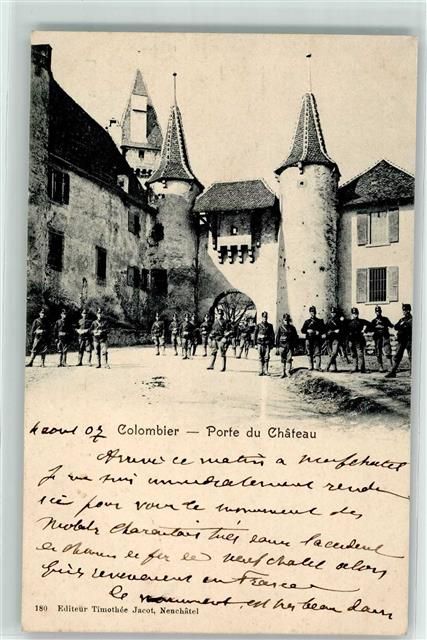 août 07 Colombier — Porte du Château
Arrivé ce matin a neufchatel
Je me suis immediatement rendu
ici pour voir le monument des
Mobiles charentais tués dans l'accident
de chemin de fer de neufchatel alors
revenaient en France
le monument est tres beau dans
180 Editeur Timothée Jacot, Neuchâtel